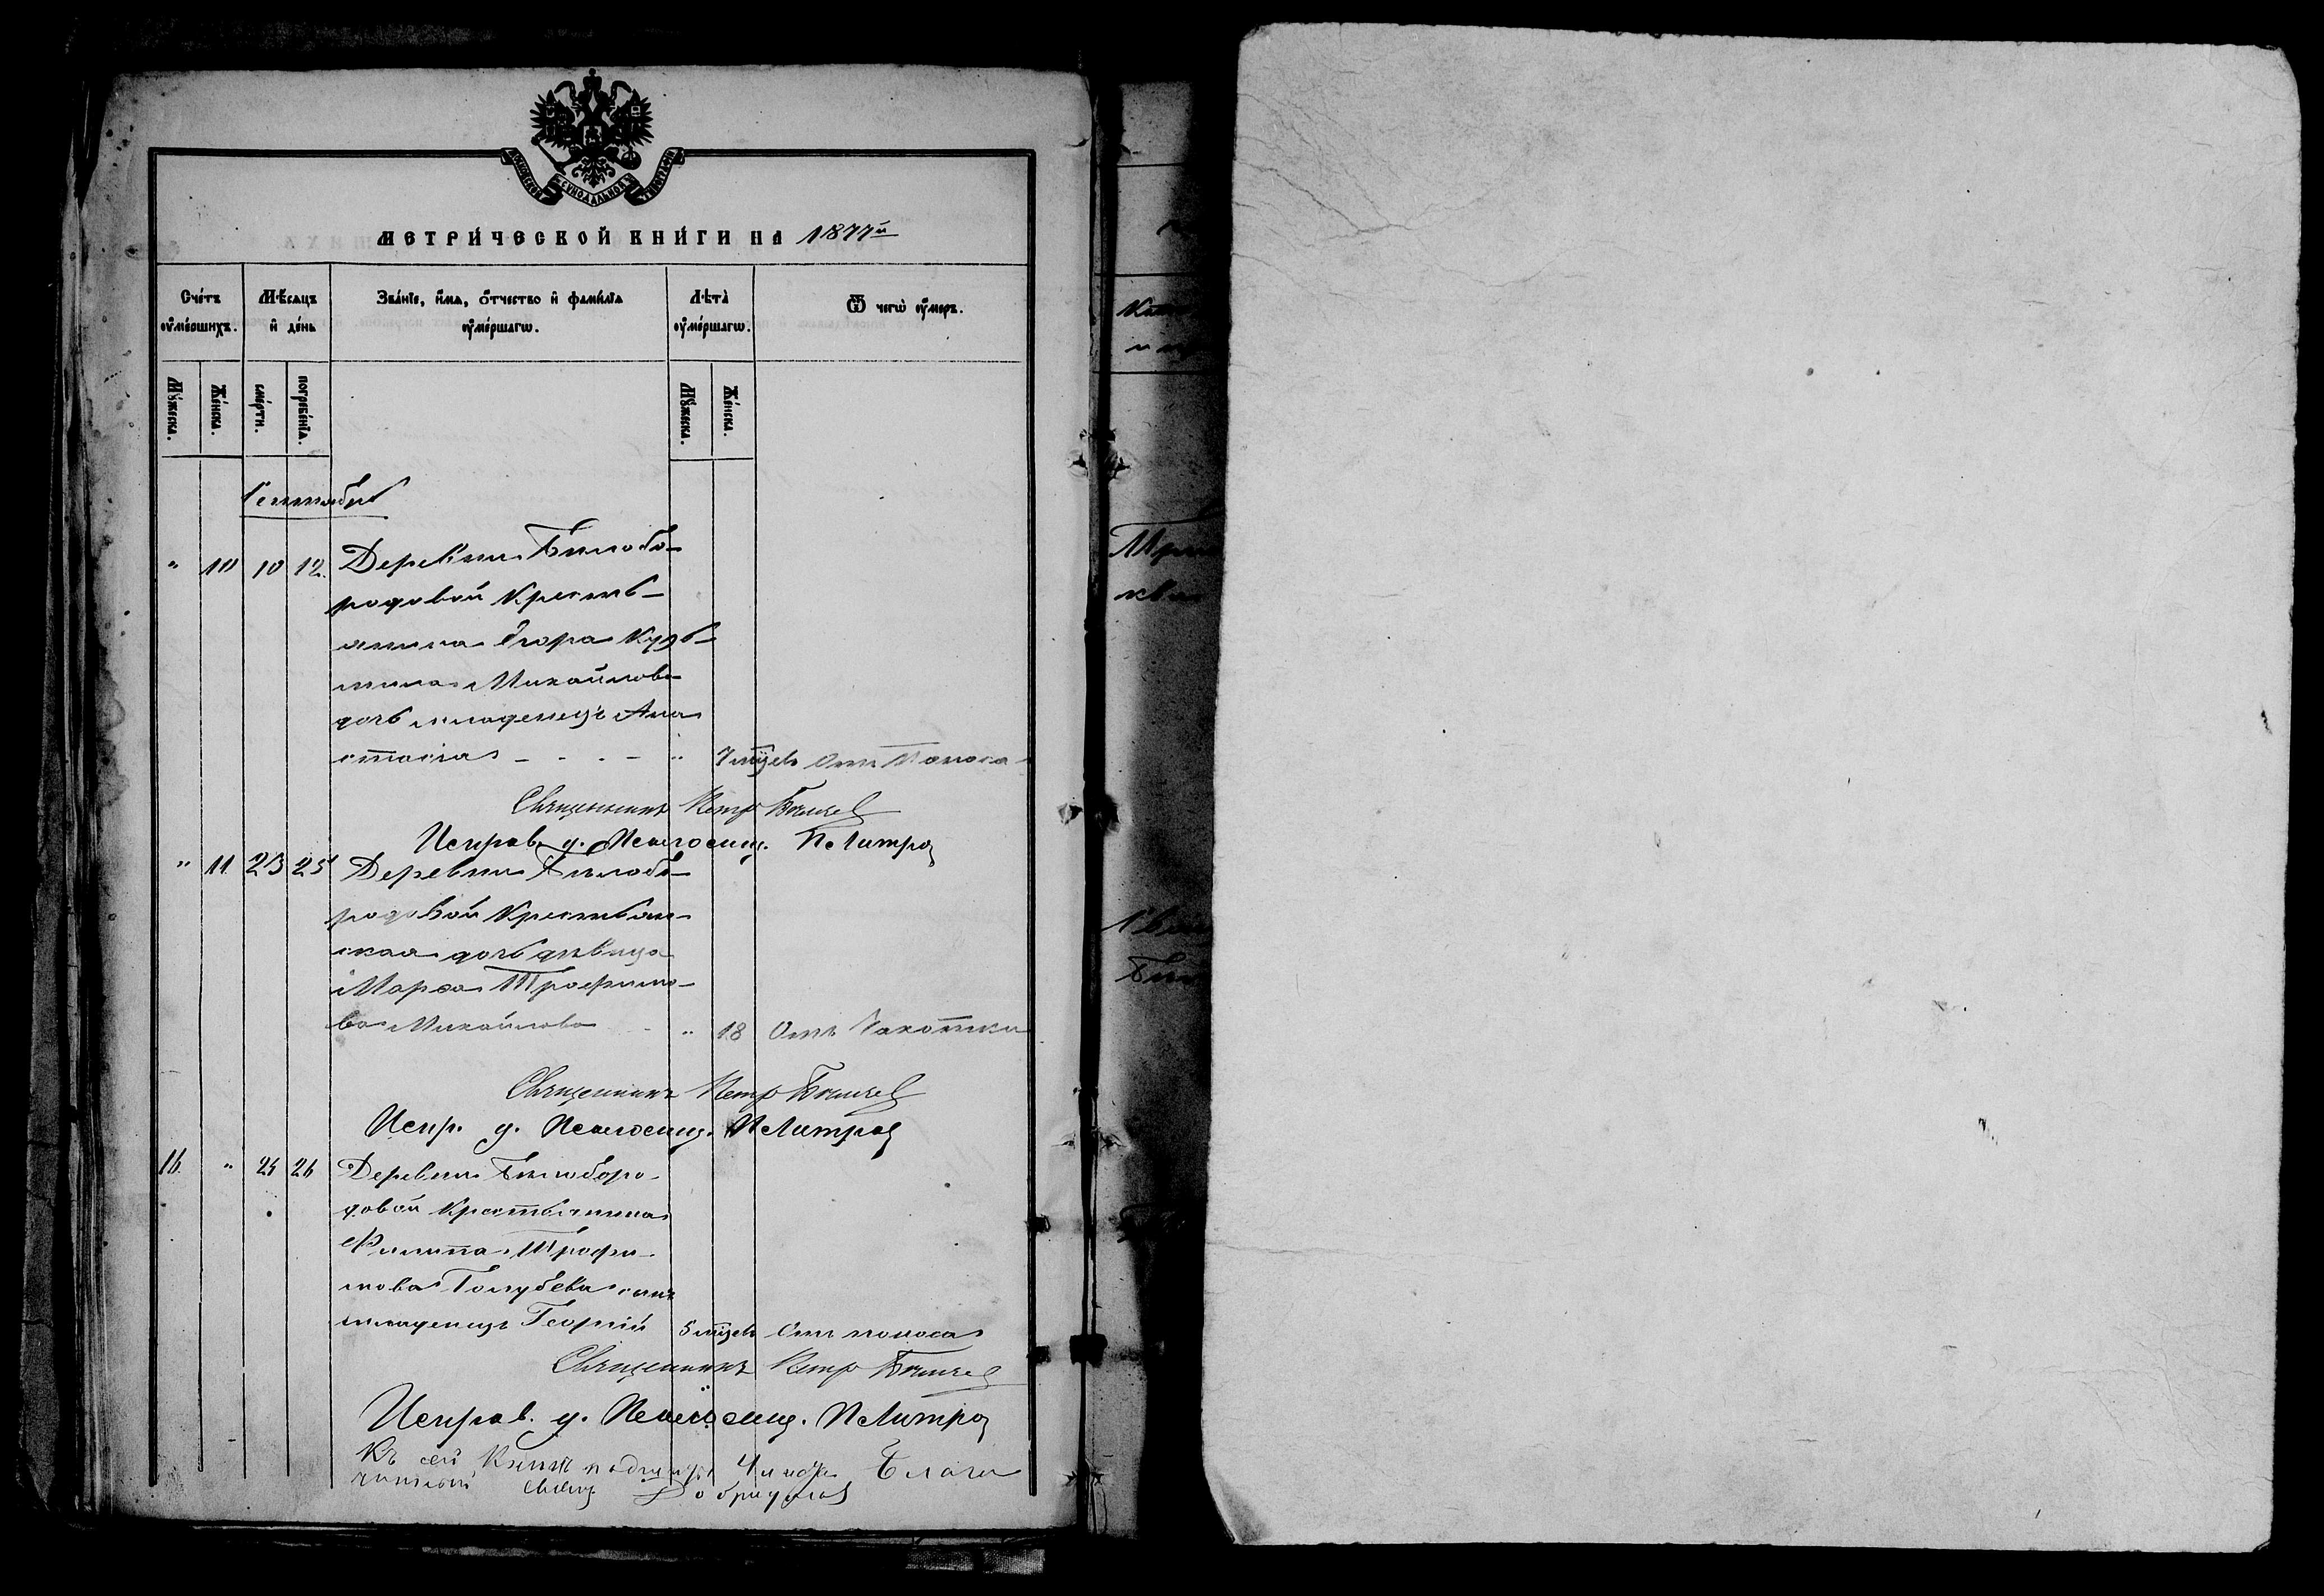 МОСКОВСКОЙ СѴНОДАЛЬНОЙ ТИПОГРАФІИ
МЕТРИ́ЧЕСКОЙ КНИ́ГИ НА 1877й
Сче́тъ ᲂу҆ме́ршихъ.
Мѣ́сяцъ и҆ де́нь
Зва́нїе, и҆́мѧ, ѻ҆́тчество и҆ фами́лїа ᲂу҆ме́ршагѡ.
Лѣта̀ ᲂу҆ме́ршагѡ.
Ѿ чегѡ̀ ᲂу҆́меръ.
Мꙋ́жеска.
Же́нска.
сме́рти.
погребе́нїѧ.
Мꙋ́жеска.
Же́нска.
Сентябрь
" 10 10 12. Деревни Бѣлобо-
родовой Кресть-
янина Егора Кузь-
мина Михайлова
дочь младенецъ Ана
стасія - - - - " 7 мцевъ Отъ Поноса
Священникъ Петръ
Исправ. д. Псаломщ.
" 11 23 25 Деревни Бѣлобо-
родовой Крестьян-
ская дочь дѣвица
Марѳа Трофимо-
ва Михайлова - " 18 Отъ Чахотки
Священникъ Петръ
Испр. д. Псаломщ.
16. " 24 26 Деревни Бѣлоборо-
довой Крестьянина
Филиппа Трофи-
мова Голубева сынъ
младенецъ Георгій 5 мцевъ Отъ поноса
Священникъ Петръ
Исправ. д. Псаломщ.
Къ сей Книгѣ Благо
чинный Свящ.